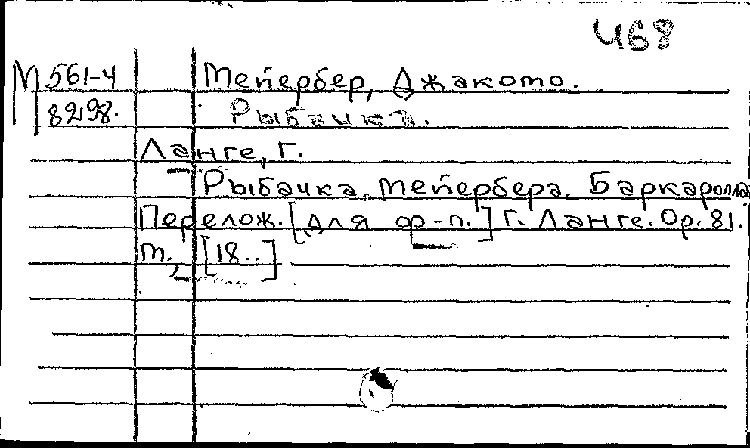 468
М 561-4 Мейербер, Джакомо.
8298. Рыбачка.
Ланге, Г.
Рыбачка Мейербера. Баркаролла
Перелож. [для ф-п.] Г. Ланге. Op. 81.
М., [18..]